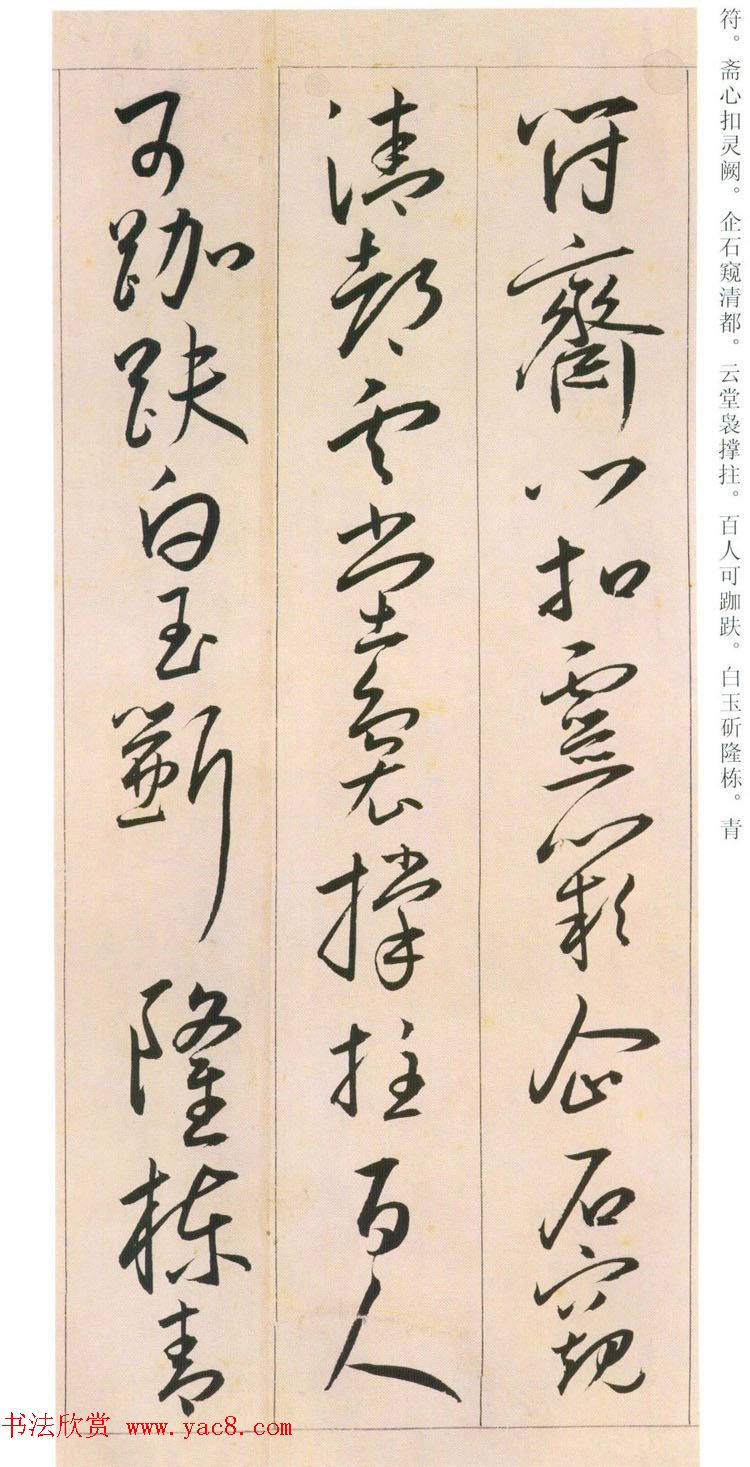 符。斋心扣灵阙。企石窥清都。云堂袅撑拄。百人可跏趺。白玉斫隆栋。青
符齋心扣靈闕企石窺
清都云堂裊撐拄百人
可跏趺白玉斲隆棟青
书法欣赏 www.yac8.com